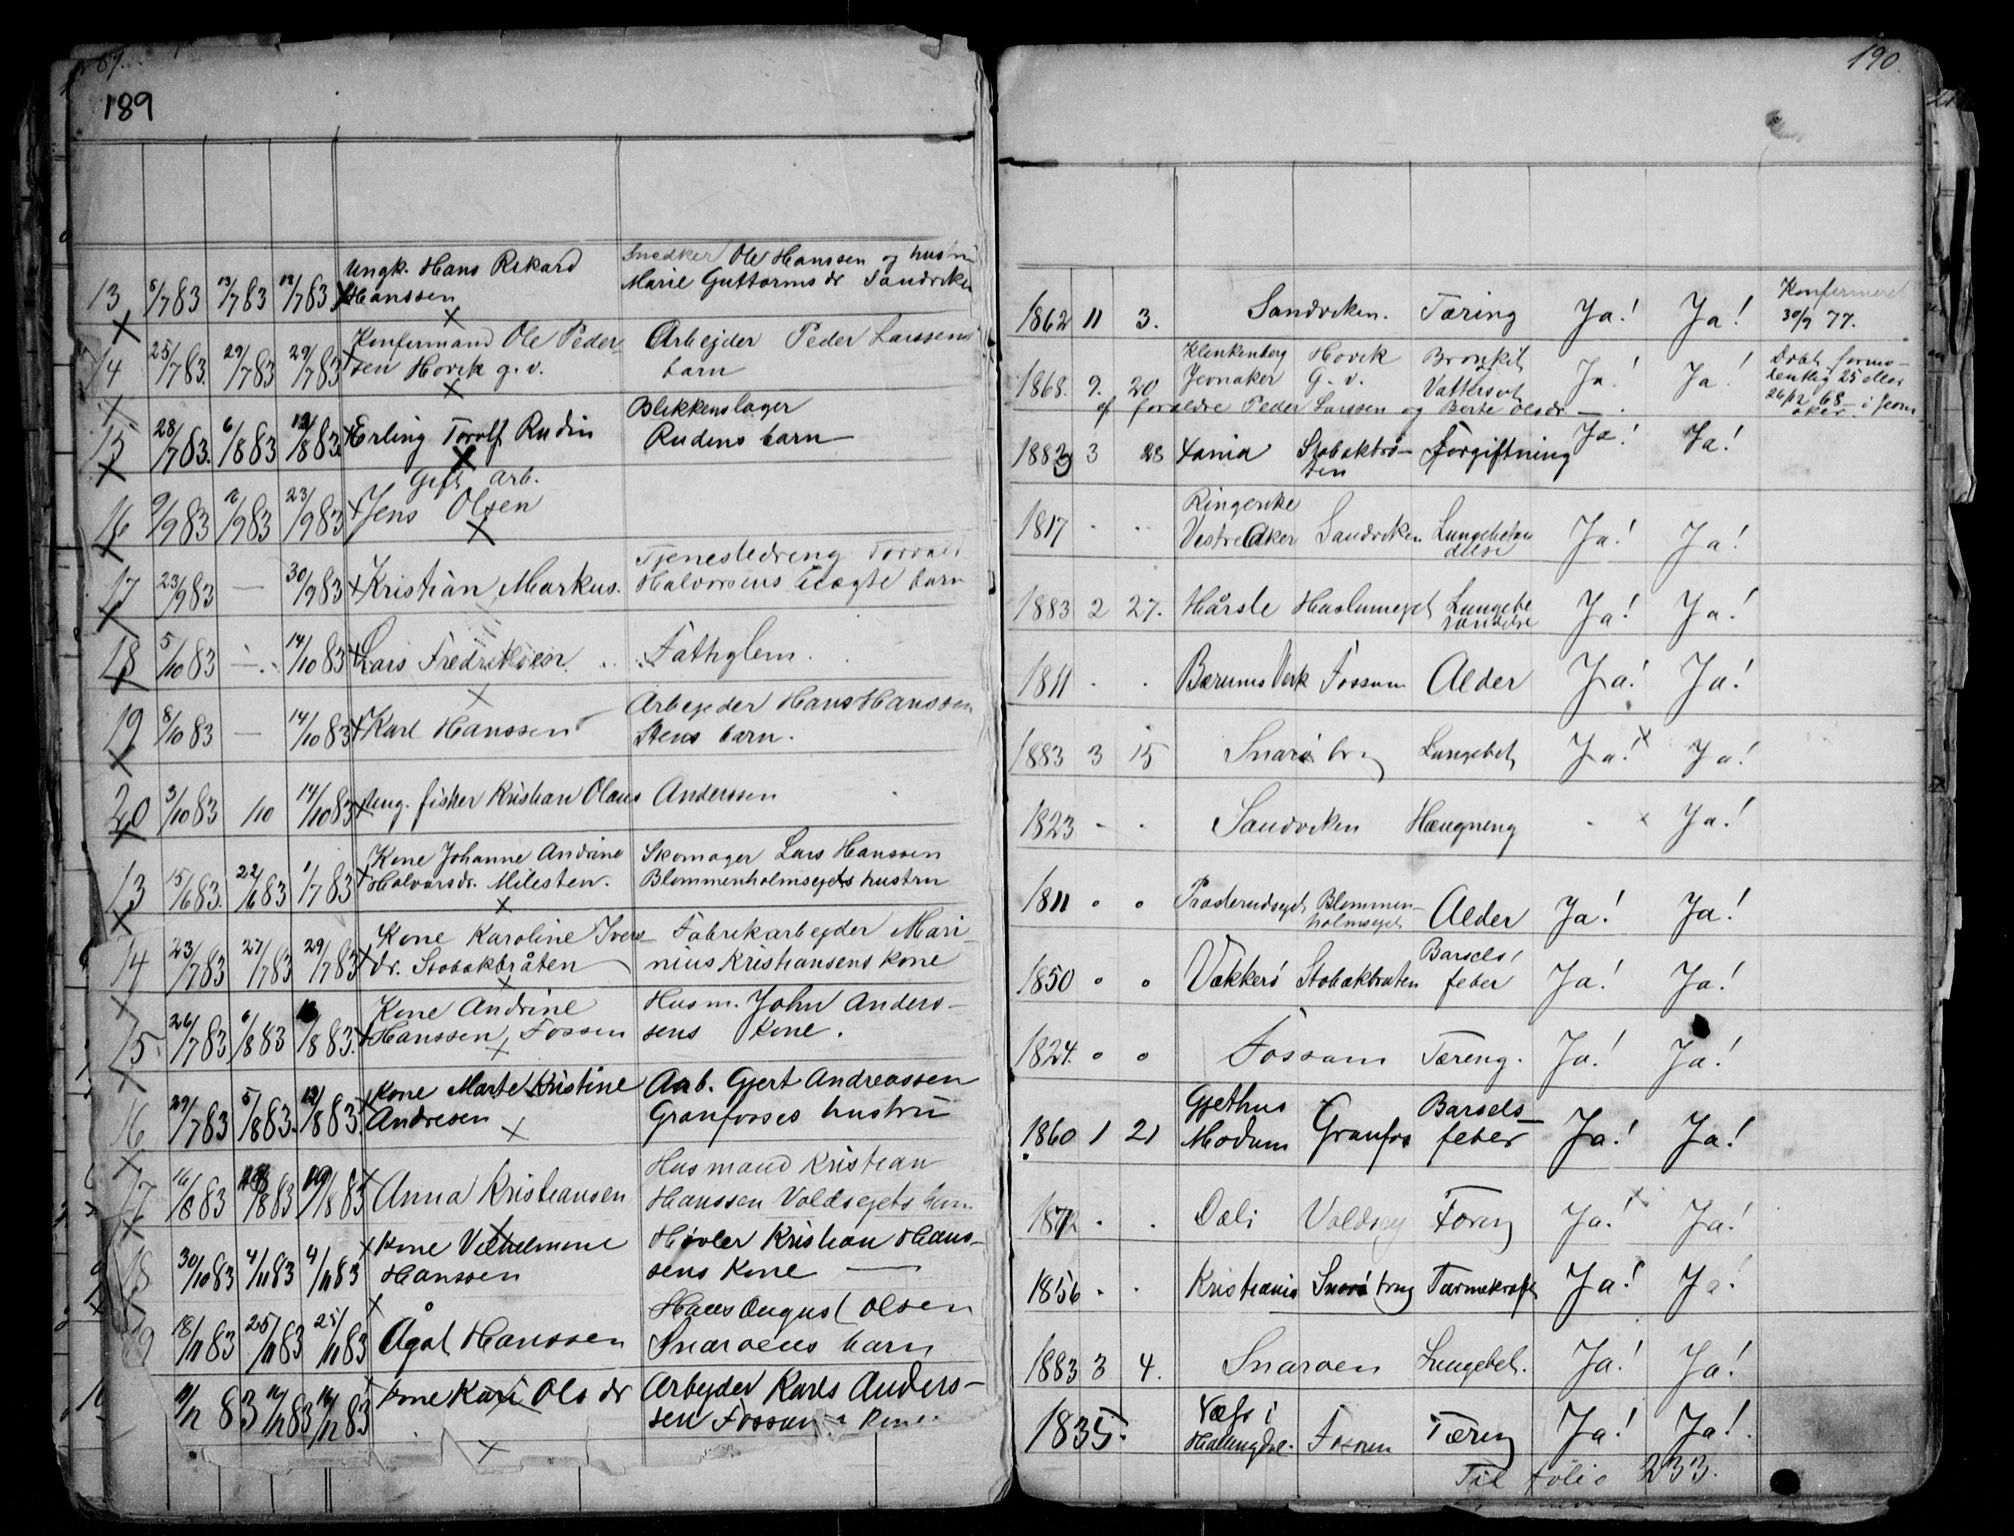 189
13 5/7 83 13/7 83 12/7 83 Ungk. Hans Rikard Snedker Ole Hanssen og hustru
Hanssen Marie Guttormsdr Sandviken
14 25/7 83. 29/7 83 29/7 83 Konfermand Ole Peder- Arbejder Peder Larssens
sen Hovik g. v. barn
15 28/7 83. 6/8 83 12/8 83 Erling Torolf Rudin Blikkenslager
Rudens barn
16 9/9 83 /9 83 23/9 83 Gift arb.
Jens Olsen
17 23/9 83 — 30/9 83 Kristian Markus. Tjenestedreng
Halvorsens uægte barn
18 5/10 83 — 14/10 83 Lars Fredriksen Fattiglem.
19 8/10 83 — 14/10 83 Karl Hanssen Arbejder Hans Hanssen
Stens barn.
20 3/10 83 /10 14/10 83 Ung. fisker Kristian Olaus Anderssen
13 15/6 83. 22/6 83 1/7 83 Kone Johanne Andrine Skomager Lars Hanssen
Halvorsdr. Milesten. Blommenholmsejets hustru
14 23/7 83 27/7 83 29/7 83 Kone Karoline Ivers- Fabrikarbejder Mari-
dr. Stobakbråten nius Kristiansens kone
15. 26/7 83 6/8 83 /8 83. Kone Andrine Husm. John Anders-
Hanssen, Fossen sens Kone.
16 29/7 83 5/8 83. 12/8 83. Kone Marte Kristine Arb. Gjert Andreassen
Andresen Granfosses hustru
17 16/8 83 /8 83 19/8 83 Anna Kristiansen Husmand Kristian
Hanssen Voldsejets barn
18 30/10 83 4/11 83 4/11 83 Kone Vilhelmine Høvler Kristian Hans-
Hanssen sens Kone —
19 18/11 83 25/11 83 25/11 83 Ågot Hanssen Hans August Olsen
Snaroens barn
11/12 83 16/12 83 16/12 83 Kone Kari Olsdr Arbejder Karls Anders-
sen Fossum Kone.
190
1862 11 3. Sandviken. Tæring Ja! Ja! Konfermeret
30/9 77.
1868. 9. 20 Klenkenberg Hovik Bronkit Ja! Ja! Døbt formo-
Jevnaker G. v. Vattersot tentlig 25 eller
26/12 68 i Jevn
af foreldre Peder Larssen og Berte Olsdr — aker
1883 3 28 Xania Stobakbrå- Forgiftning Ja! Ja!
ten
1817 . . Ringerike
Vestre Aker Sandviken Lungebetæn Ja! Ja!
delse
1883 2 27. Hårsle Haslumejet Lungebe Ja! Ja!
tændelse
1811 . . Bærums Verk Fossum Alder Ja! Ja!
1883 3 15 Snarø brug Lungebet Ja! Ja!
1823 . . Sandviken Hængning . Ja!
1811 . . Præsterudsejet Blommen- Alder Ja! Ja!
holmsejet
1850 . . Vækkerø Stobakbraten Barsels- Ja! Ja!
feber
1824. . . Fossum Tæreng. Ja! Ja!
1860 1 21 Gjethus Granfos Barsels- Ja! Ja!
Modum feber
1872 . . Dæli Voldsej Tæring Ja! Ja!
1856 . . Kristiania Snarø brug Tarmekræft Ja! Ja!
1883 3 4. Snaroen Lungebet. Ja! Ja!
1835. Næs i
Hallingdal. Fossum Tæring Ja! Ja!
Til folio 233.